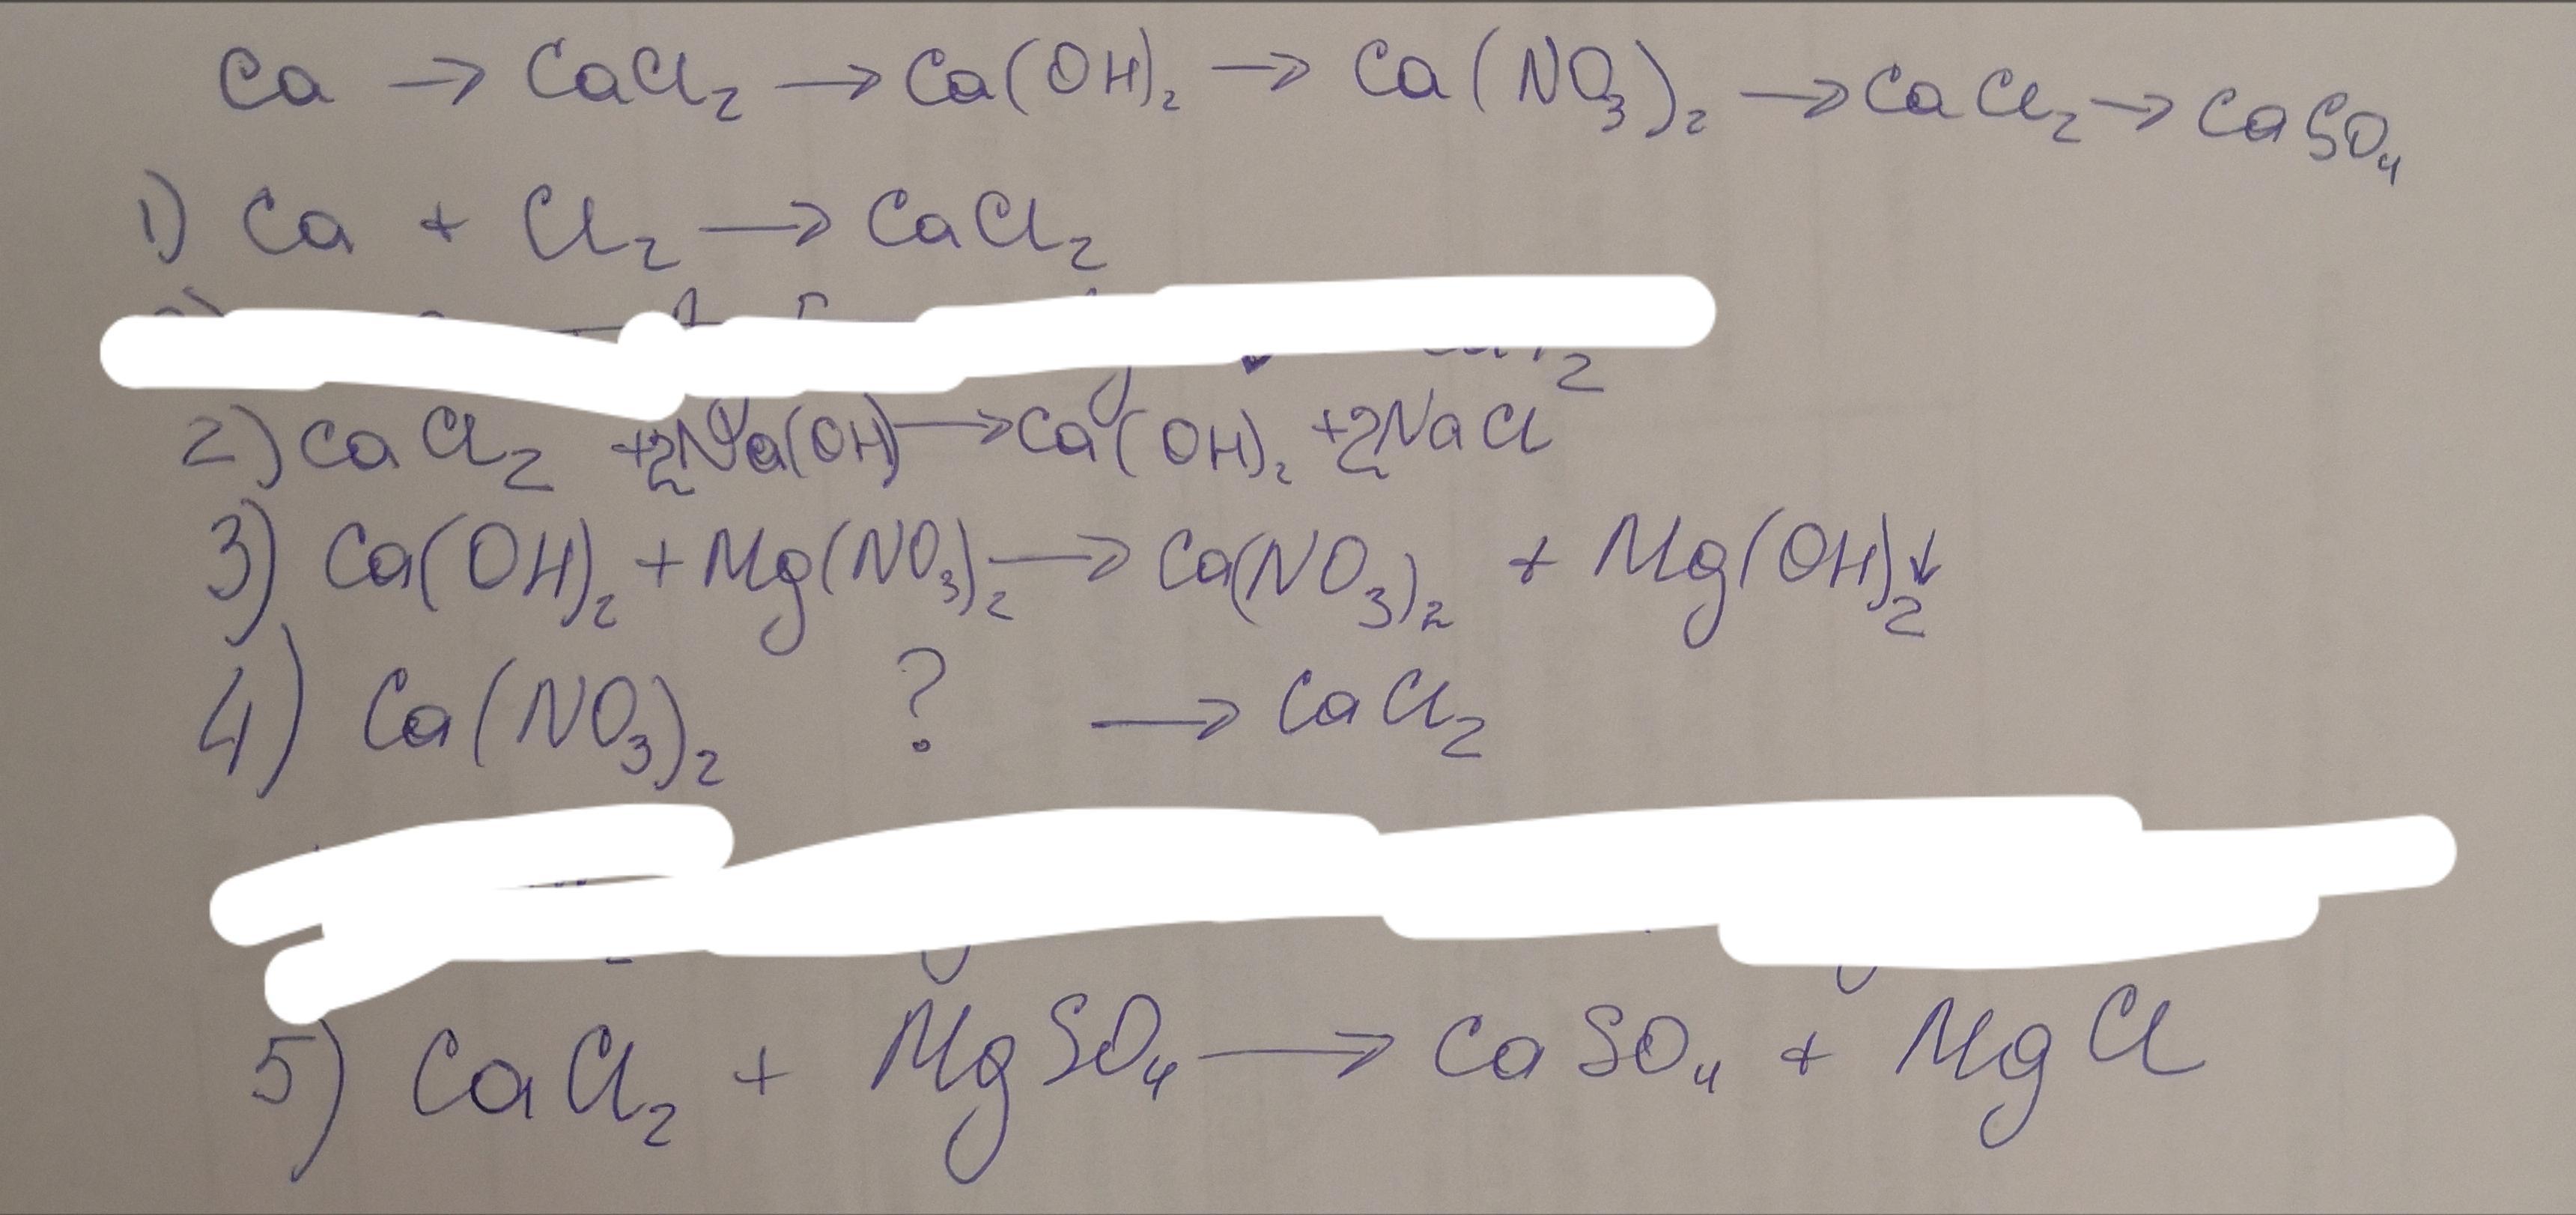 Ca → CaCl₂ → Ca(OH)₂ → Ca(NO₃)₂ → CaCl₂ → CaSO₄
1) Ca + Cl₂ → CaCl₂
2) CaCl₂ +2Na(OH) → Ca(OH)₂ +2NaCl
3) Ca(OH)₂ + Mg(NO₃)₂ → Ca(NO₃)₂ + Mg(OH)₂↓
4) Ca(NO₃)₂ ? → CaCl₂
5) CaCl₂ + MgSO₄ → CaSO₄ + MgCl